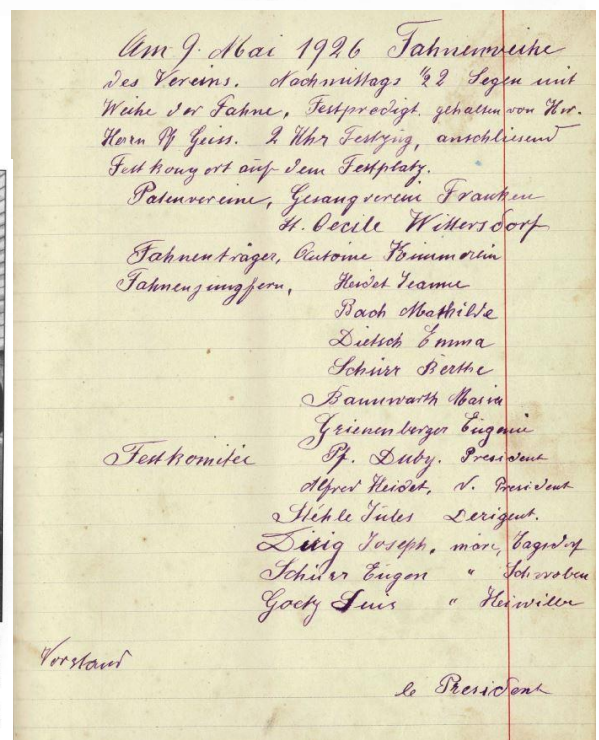 Am 9. Mai 1926 Fahnenweihe
des Vereins. Nachmittags ½2 Segen mit
Weihe der Fahne, Festpredigt, gehalten von Hr.
Herrn Pf Geiss. 2 Uhr Festzug, anschliesend
Festkonzort auf dem Festplatz.
Patenvereine, Gesangverein Franken
St. Cecile Wittersdorf
Fahnenträger, Antoine
Fahnenjungfern, Heidet Jeanne
Bach Mathilde
Dietsch Emma
Schürr Berthe
Bannwarth Maria
Grienenberger Eugenie
Festkomitée Pf. Duby. President
Alfred Heidet, V. President
Stéhle Jules Derigent.
Dirig Joseph, mâre, Tagsdorf
Schürr Eugen " Schwoben
Goetz Luis " Heiwiller
Vorstand
le President